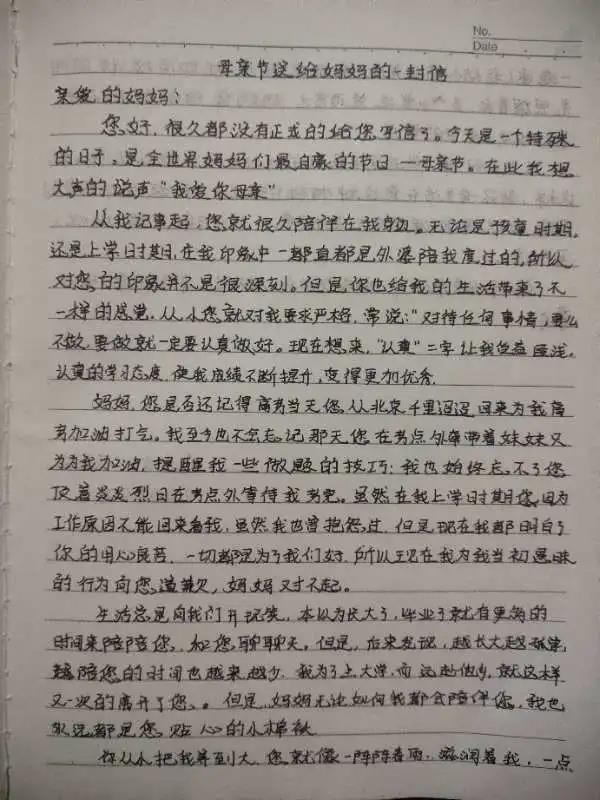 No.
Date
母亲节送给妈妈的一封信
亲爱的妈妈：
您好，很久都没有正式的给您写信了。今天是一个特殊
的日子，是全世界妈妈们最自豪的节日—母亲节。在此我想
大声的说声“我爱你母亲”
从我记事起，您就很久陪伴在我身边。无论是孩童时期，
还是上学时期，在我印象中一都直都是外婆陪我度过的，所以
对您的印象并不是很深刻。但是你也给我的生活带来了不
一样的感觉。从小您就对我要求严格，常说：“对待任何事情，要么
不做，要做就一定要认真做好。现在想来，“认真”二字让我受益匪浅。
认真的学习态度，使我成绩不断提升，变得更加优秀。
妈妈，您是否还记得高考当天您从北京千里迢迢回来为我高
考加油打气。我至今也不会忘记那天您在考点外牵带着妹妹又
为为我加油，提醒我一些做题的技巧；我也始终忘不了您
顶着炎炎烈日在考点外等待我考完。虽然在我上学时期您因为
工作原因不能回来看我，虽然我也曾抱怨过，但是现在我都明白了
你的用心良苦，一切都是为了我们好，所以现在我为我当初愚昧
的行为向您道歉，妈妈对不起。
生活总是向我们开玩笑，本以为长大了，毕业了就有更多的
时间来陪陪您，和您聊聊天。但是，后来发现，越长大越孤单，
越陪您的时间也越来越少，我为了上大学，而远赴他乡，就这样
又一次的离开了您。但是，妈妈无论如何我都会陪伴您，我也
永远都是您贴心的小棉袄
你从小把我养到大，您就像一阵阵春雨，滋润着我，一点